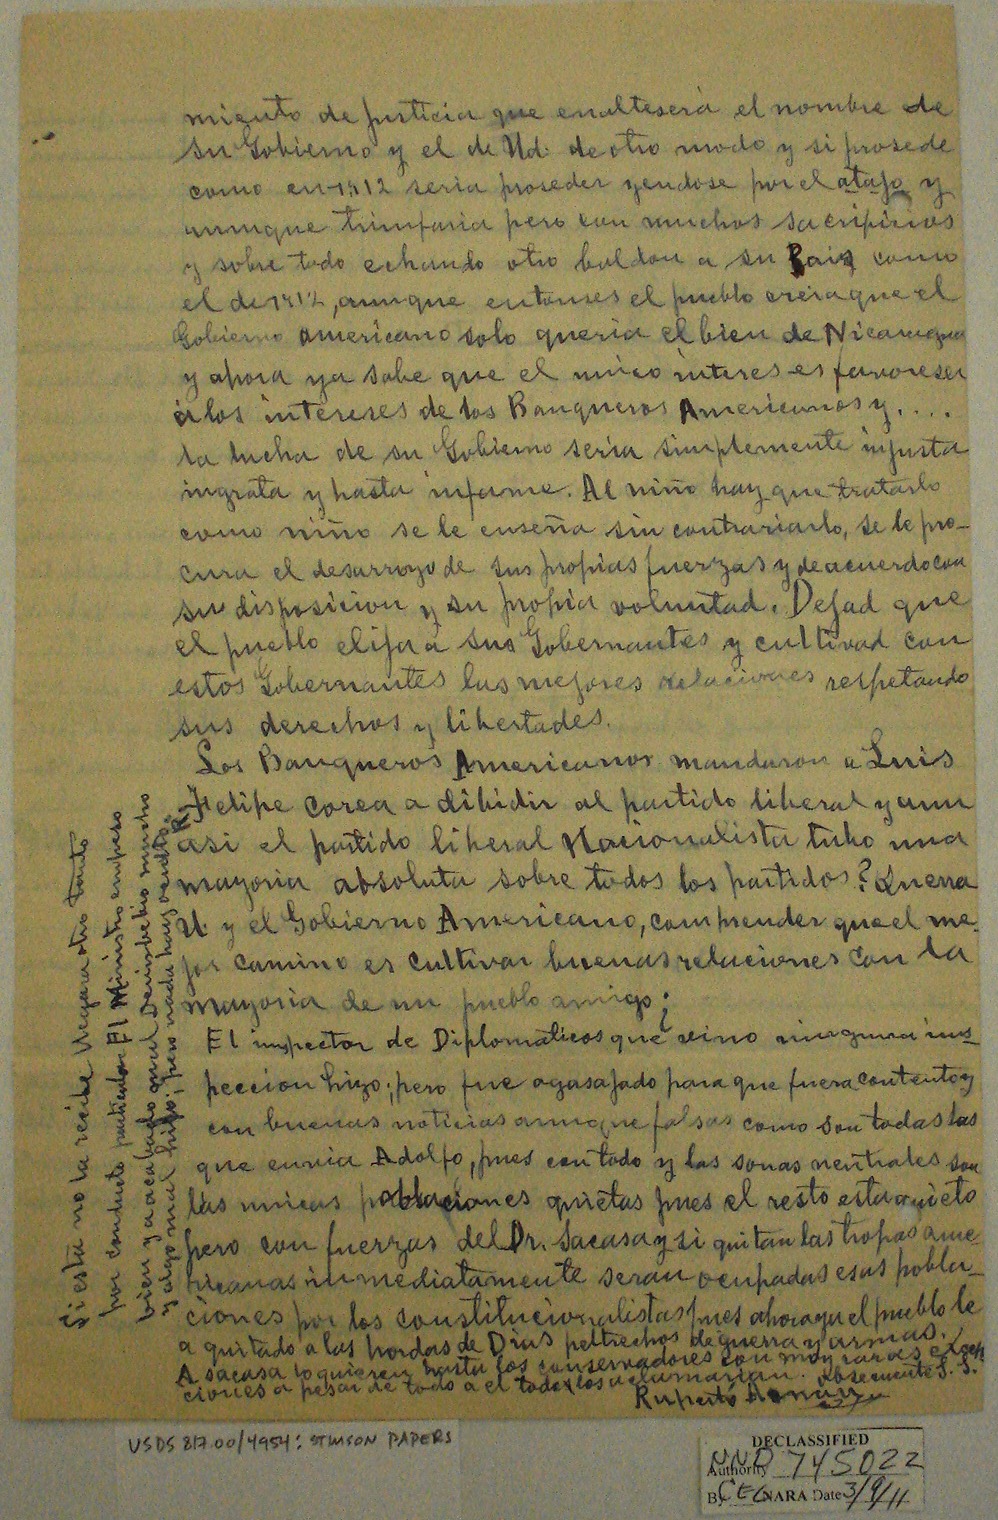 miento de justicia que enaltesera el nombre de
su Gobierno y el de Ud. de otro modo y si prosede
como en 1912 seria proseder yendose por el atajo y
aunque triunfaria pero con muchos sacrificios
y sobre todo echando otro baldon a su Pais como
el de 1912, aunque entonses el pueblo creia que el
Gobierno americano solo queria el bien de Nicaragua
y ahora ya sabe que el unico interes es favoreser
a los intereses de los Banqueros Americanos y....
la lucha de su Gobierno seria simplemente injusta
ingrata y hasta infame. Al niño hay que tratarlo
como niño se le enseña sin contrariarlo, se le pro-
cura el desarroyo de sus propias fuerzas y de acuerdo con
su disposicion y su propia voluntad. Dejad que
el pueblo elija a sus Gobernantes y cultivad con
estos Gobernantes las mejores relaciones respetando
sus derechos y libertades.
Los Banqueros Americanos mandaron a Luis
Felipe Corea a dibidir al partido liberal y aun
asi el partido liberal Nacionalista tubo una
mayoria absoluta sobre todos los partidos? Querra
U. y el Gobierno Americano, comprender que el me-
jor camino es cultivar buenas relaciones con la
mayoria de un pueblo amigo¿
El inspector de Diplomaticos que vino ninguna ins-
peccion hizo; pero fue agasajado para que fuera contento y
con buenas noticias aunque falsas como son todas las
que envia Adolfo, pues con todo y las sonas neutrales son
las unicas poblaciones quietas pues el resto esta quieto
pero con fuerzas del Dr. Sacasa y si quitan las tropas ame-
ricanas inmediatamente seran ocupadas esas pobla-
ciones por los constitucionalistas pues ahora que el pueblo le
a quitado a las hordas de Dias peltrechos de guerra y armas.
A Sacasa lo quieren hasta los conservadores con muy raras exsep
ciones a pesar de todo a el todos los aclamarian. Obsecuente S. S.
Ruperto
Si esta no la recibe llegara otro tanto
por conducto particular El Ministro empeso
bien y a acabado mal Denisbetio mucho
y algo mal hizo; pero nada hay oculto.
USDS 817.00/4954: STIMSON PAPERS
DECLASSIFIED
Authority NND 745022
By CEL NARA Date 3/9/11